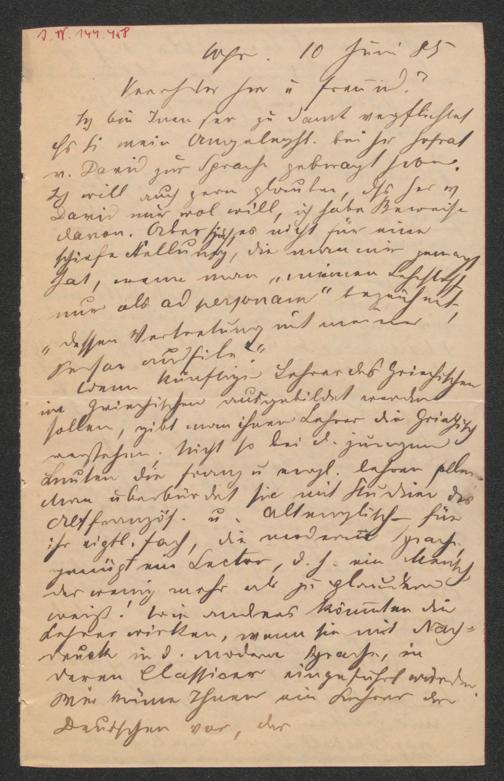 I. N. 144.458
10 Juni 85
Verehrter Herr u Freund!
Ich bin Ihnen sehr zu Dank verpflichtet
daß Sie meine Angeleght. bei Hr Hofrat
v. David zur Sprache gebracht haben.
Ich will auch gern glauben, daß Hr v
David mir wol will, ich habe Beweise
davon. Aber ist es nicht für eine
schiefe Stellung, die man mir gemacht
hat, wenn man „meinen Lehrstuhl
nur als ad personam“ bezeichnet,
„dessen Vertretung mit meiner
Person aufhöre“.
Wenn künftige Lehrer des Griechischen
im Griechischen ausgebildet werden
sollen, gibt man ihnen Lehrer die Griechisch
verstehen. Nicht so bei d. jungen
Leuten die franz u engl. lehren sollen
Man überbürdet sie mit Studien des
Altfranzös. u. Altenglisch für
ihr eigtl. Fach, die moderne Sprache,
genügt ein Lector, d. h. ein Mensch
der wenig mehr als zu plaudern
weiß! Wie anders könnten die
Lehrer wirken, wenn sie mit Nach-
druck in d. modern Sprache, in
deren Classicer eingeführt würden.
Wie käme Ihnen ein Lehrer des
Deutschen vor, der